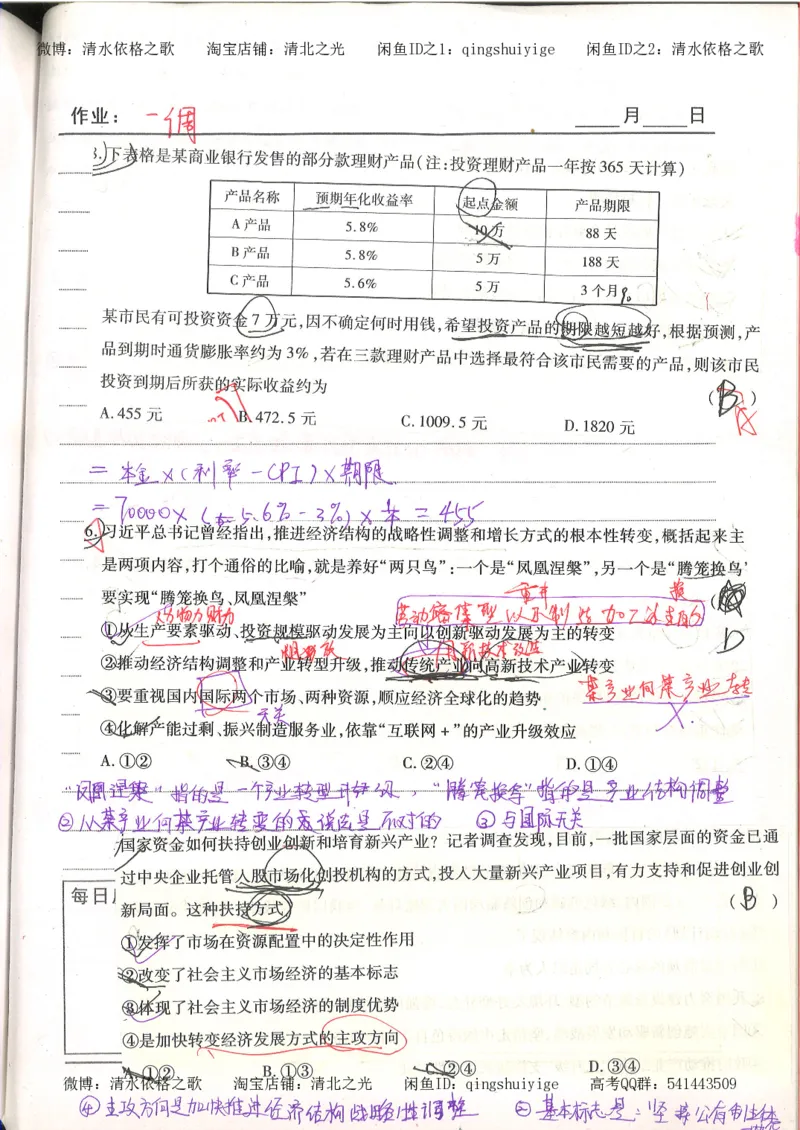 微博：清水依格之歌 淘宝店铺：清北之光 闲鱼ID之1：qingshuiyige 闲鱼ID之2：清水依格之歌
作业： 一周 ____月____日
3.下表格是某商业银行发售的部分款理财产品(注:投资理财产品一年按365天计算)
产品名称 预期年化收益率 起点金额 产品期限
A产品 5.8% 10万 88天
B产品 5.8% 5万 188天
C产品 5.6% 5万 3个月
某市民有可投资资金7万元,因不确定何时用钱,希望投资产品的期限越短越好,根据预测,产
品到期时通货膨胀率约为3%,若在三款理财产品中选择最符合该市民需要的产品,则该市民
投资到期后所获的实际收益约为 ( B )
A.455元 B.472.5元 C.1009.5元 D.1820元
A
= 本金×(利率-CPI)×期限
=70000×(5.6%-3%)× = 455
6.习近平总书记曾经指出,推进经济结构的战略性调整和增长方式的根本性转变,概括起来主
是两项内容,打个通俗的比喻,就是养好“两只鸟”:一个是“凤凰涅槃”,另一个是“腾笼换鸟”
要实现“腾笼换鸟、凤凰涅槃”
D
①从生产要素驱动、投资规模驱动发展为主向以创新驱动发展为主的转变
②推动经济结构调整和产业转型升级,推动传统产业向高新技术产业转变
某产业向某产业转
③要重视国内国际两个市场、两种资源,顺应经济全球化的趋势
无关
④化解产能过剩、振兴制造服务业,依靠“互联网+”的产业升级效应
A.①② B.③④ C.②④ D.①④
“凤凰涅槃”指的是一个产业转型升级，“腾笼换鸟”指的是产业结构调整
②从某产业向某产业转变的 说法是不对的 ③与国际无关
国家资金如何扶持创业创新和培育新兴产业？记者调查发现,目前,一批国家层面的资金已通
过中央企业托管入股市场化创投机构的方式,投入大量新兴产业项目,有力支持和促进创业创
新局面。这种扶持方式 ( B )
每日
①发挥了市场在资源配置中的决定性作用
②改变了社会主义市场经济的基本标志
③体现了社会主义市场经济的制度优势
④是加快转变经济发展方式的主攻方向
A.①② B.①③ C.②④ D.③④
微博：清水依格之歌 淘宝店铺：清北之光 闲鱼ID：qingshuiyige 高考QQ群：541443509
④主攻方向是加快推进经济结构战略性调整 ②基本标志是：坚持公有制主体